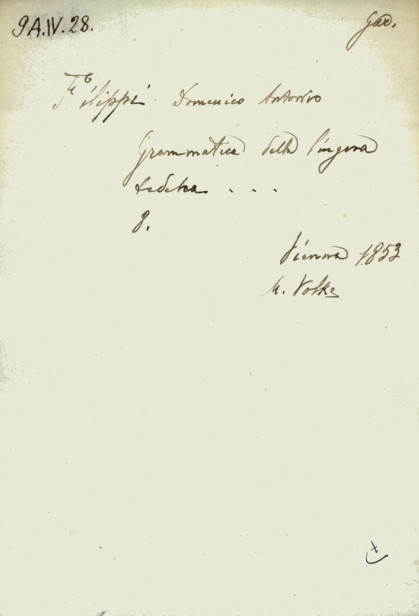 9A.IV.28.
Filippi Domenico Antonio
Grammatica della lingua
tedesca . . .
8.
Vienna 1853